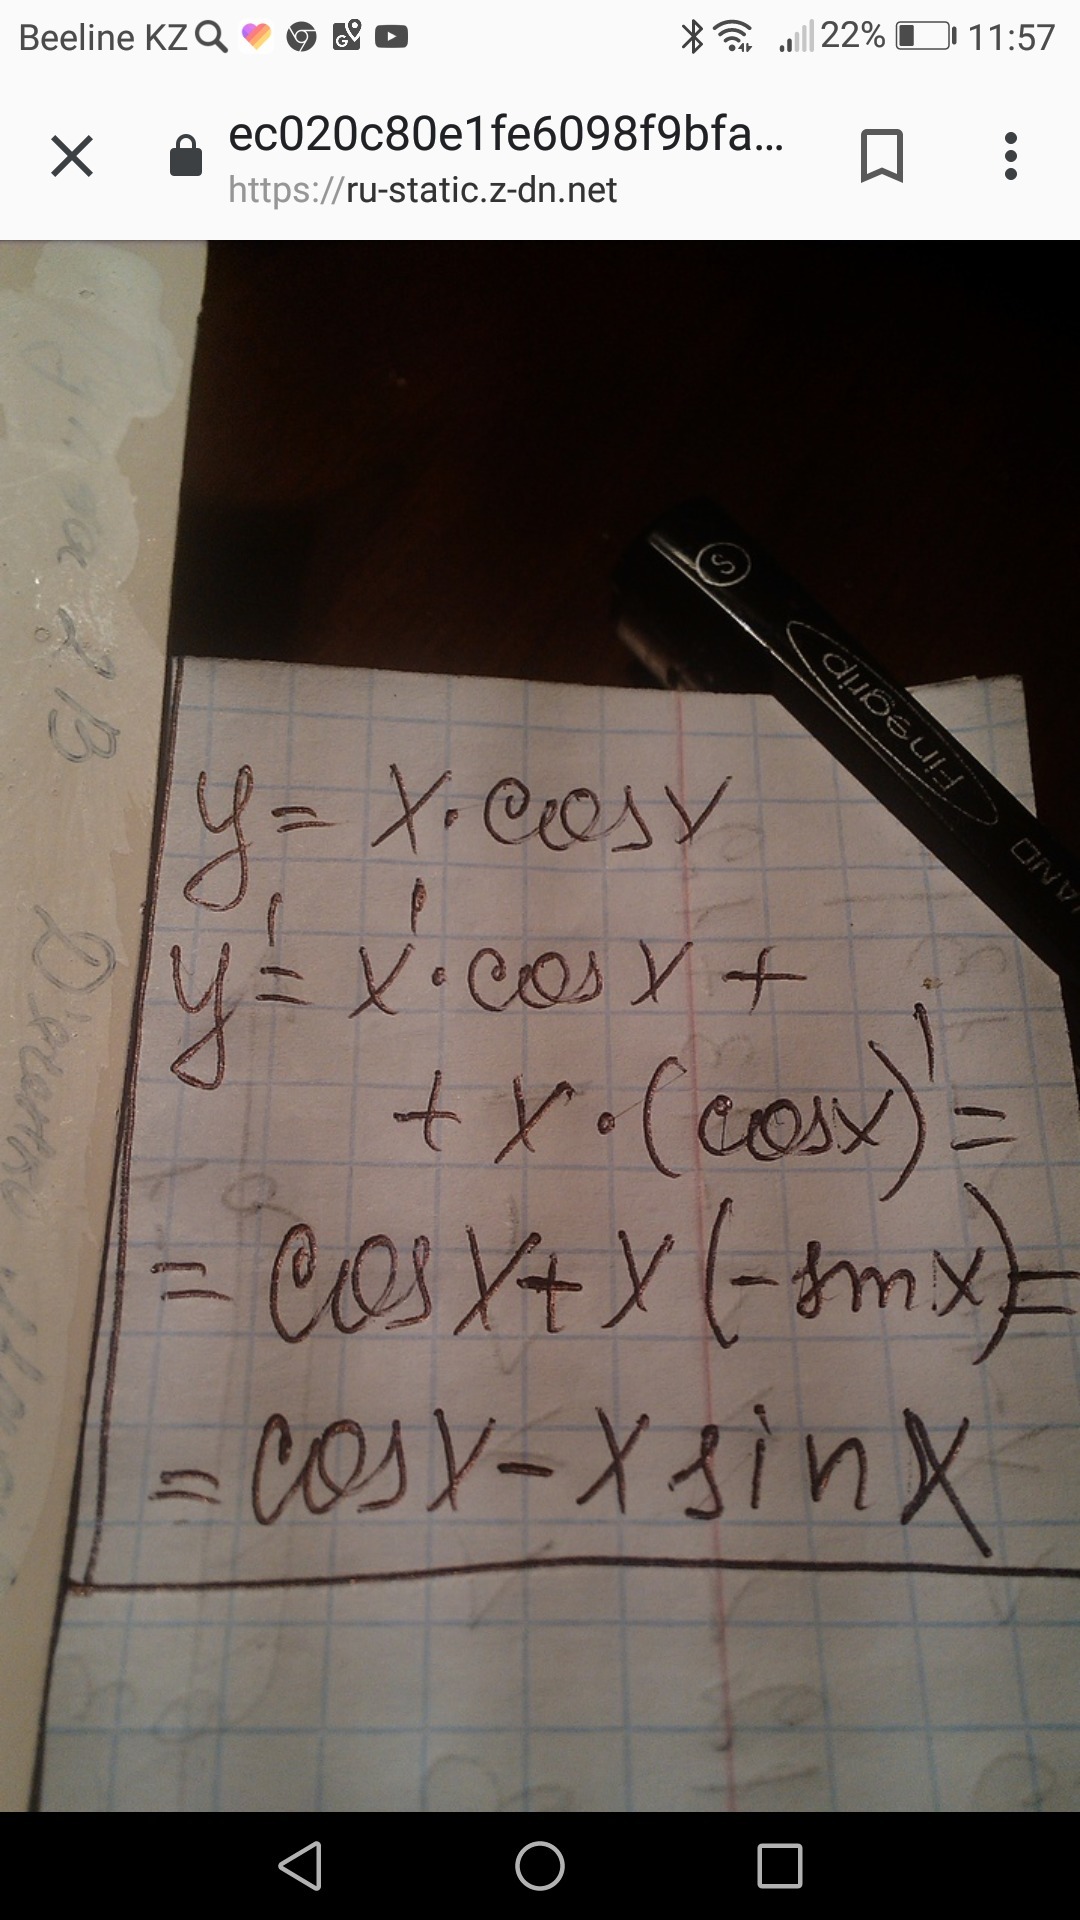 Beeline KZ 22% 11:57
ec020c80e1fe6098f9bfa...
https://ru-static.z-dn.net
S
Finegrip
y = x · cos x
y' = x' · cos x +
+ x · (cos x)' =
= cos x + x (- sin x) =
= cos x - x sin x